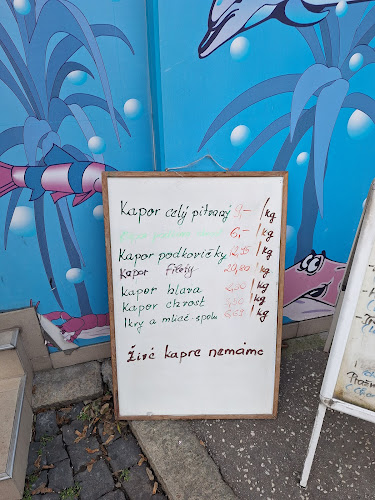 Kapor celý pitvaný 9,- /kg
Kapor 6,- /kg
Kapor podkovičky 12,95 /kg
Kapor Filety /kg
Kapor hlava /kg
Kapor chrost /kg
Ikry a mlieč-spolu /kg
Živé kapre nemáme